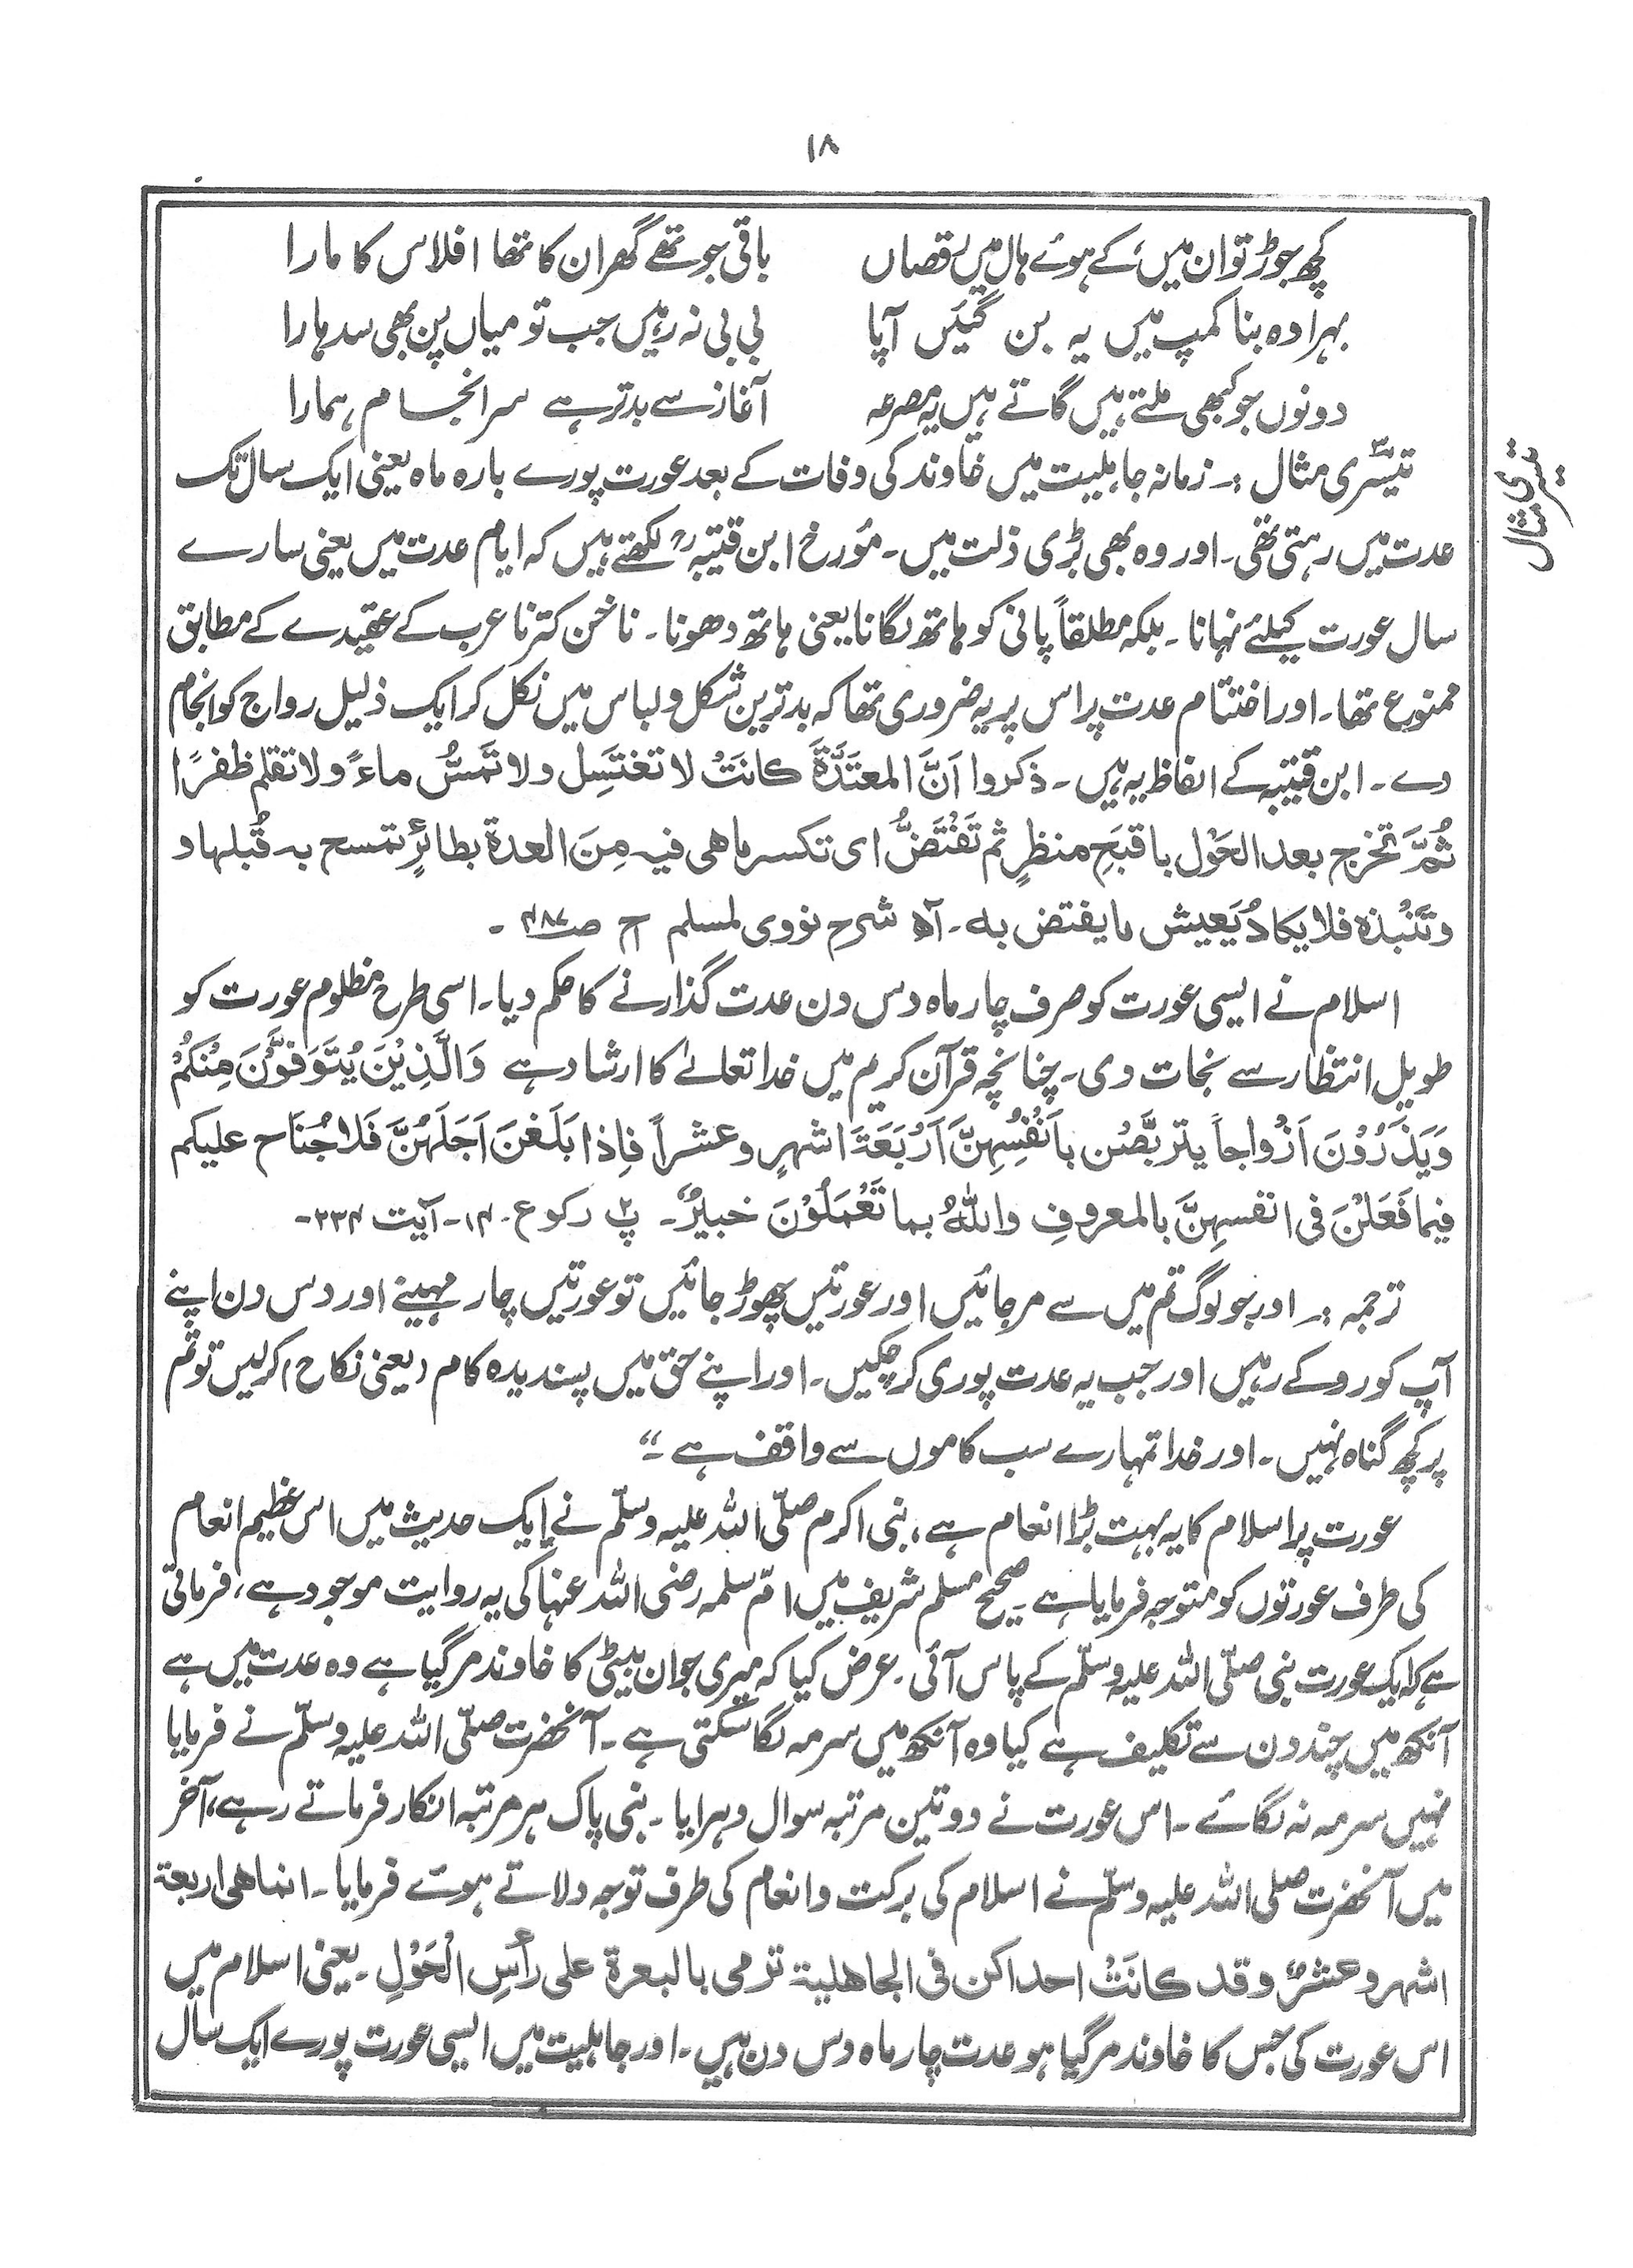 ۱۸
کچھ جوڑ تو ان میں کے ہوئے ہال میں رقصاں باقی جو تھے گھر ان کا تھا افلاس کا مارا
بہرا وہ بنا کمپ میں یہ بن گئیں آپا بی بی نہ رہیں جب تو میاں پن بھی سدہارا
دونوں جو کبھی ملتے ہیں گاتے ہیں یہ مصرعہ آغاز سے بدتر ہے سرانجام ہمارا
تیسری مثال
تیسّری مثال :۔ زمانہ جاہلیت میں خاوند کی وفات کے بعد عورت پورے بارہ ماہ یعنی ایک سال تک
عدت میں رہتی تھی۔ اور وہ بھی بڑی ذلت میں۔ مؤرخ ابن قتیبہؒ لکھتے ہیں کہ ایام عدت میں یعنی سارے
سال عورت کیلئے نہانا۔ بلکہ مطلقاً پانی کو ہاتھ لگانا یعنی ہاتھ دھونا۔ ناخن کترنا عرب کے عقیدے کے مطابق
ممنوع تھا۔ اور اختتام عدت پر اس پر یہ ضروری تھا کہ بدترین شکل و لباس میں نکل کر ایک ذلیل رواج کو انجام
دے۔ ابن قتیبہ کے الفاظ یہ ہیں۔ ذکروا اَنَّ المعتَدَّةَ کانَتْ لا تغتَسِل ولا تَمسُّ ماءً ولا تقلم ظفرًا
ثُمَّ تخرج بعد الحَوْل باقبَحِ منظرٍ ثم تَفْتَضُّ ای تکسر ما ھی فیہ مِنَ العدة بطائرٍ تمسح بہ قُبلها و
وتَنْبذہ فلا یکادُ یَعیش ما یفتض بہ۔ اٰھ شرح نووی لمسلم ج ص۴۸۷۔
اسلام نے ایسی عورت کو صرف چار ماہ دس دن عدت گذارنے کا حکم دیا۔ اسی طرح مظلوم عورت کو
طویل انتظار سے نجات دی۔ چنانچہ قرآن کریم میں خدا تعالےٰ کا ارشاد ہے وَالَّذِیْنَ یُتَوَفَّوْنَ مِنْکُمْ
وَیَذَرُوْنَ اَزْواجاً یتربَّصْن باَنْفُسِهِنَّ اَرْبَعَةَ اشهرٍ وعشراً فاِذا بَلَغنَ اَجَلَهُنَّ فَلا جُنَاح علیکم
فیما فَعَلْنَ فی انفسهِنَّ بالمعروفِ واللّٰہُ بما تَعْمَلُوْنَ خبیرٌ۔ پ۲ رکوع۔۱۴۔ آیت ۲۳۴۔
ترجمہ :۔ اور جو لوگ تم میں سے مر جائیں اور عورتیں چھوڑ جائیں تو عورتیں چار مہینے اور دس دن اپنے
آپ کو روکے رہیں اور جب یہ عدت پوری کر چکیں۔ اور اپنے حق میں پسندیدہ کام (یعنی نکاح) کر لیں تو تم
پر کچھ گناہ نہیں۔ اور خدا تمہارے سب کاموں سے واقف ہے۔“
عورت پر اسلام کا یہ بہت بڑا انعام ہے، نبی اکرم صلّی اللہ علیہ وسلّم نے ایک حدیث میں اس عظیم انعام
کی طرف عورتوں کو متوجہ فرمایا ہے۔ صحیح مسلم شریف میں امّ سلمہ رضی اللہ عنہا کی یہ روایت موجود ہے، فرماتی
ہے کہ ایک عورت نبی صلّی اللہ علیہ وسلّم کے پاس آئی۔ عرض کیا کہ میری جوان بیٹی کا خاوند مر گیا ہے وہ عدت میں ہے
آنکھ میں چند دن سے تکلیف ہے کیا وہ آنکھ میں سرمہ لگا سکتی ہے۔ آنحضرت صلّی اللہ علیہ وسلّم نے فرمایا
نہیں سرمہ نہ لگائے۔ اس عورت نے دو تین مرتبہ سوال دہرایا۔ نبی پاک ہر مرتبہ انکار فرماتے رہے، آخر
میں آنحضرت صلی اللہ علیہ وسلّم نے اسلام کی برکت و انعام کی طرف توجہ دلاتے ہوئے فرمایا۔ انما ھی اربعة
اشهر وعشرٌ وقد کانَتْ احداکن فی الجاهلیة ترمی بالبعرة علی رأسِ الْحَوْلِ۔ یعنی اسلام میں
اس عورت کی جس کا خاوند مر گیا ہو عدت چار ماہ دس دن ہیں۔ اور جاہلیت میں ایسی عورت پورے ایک سال